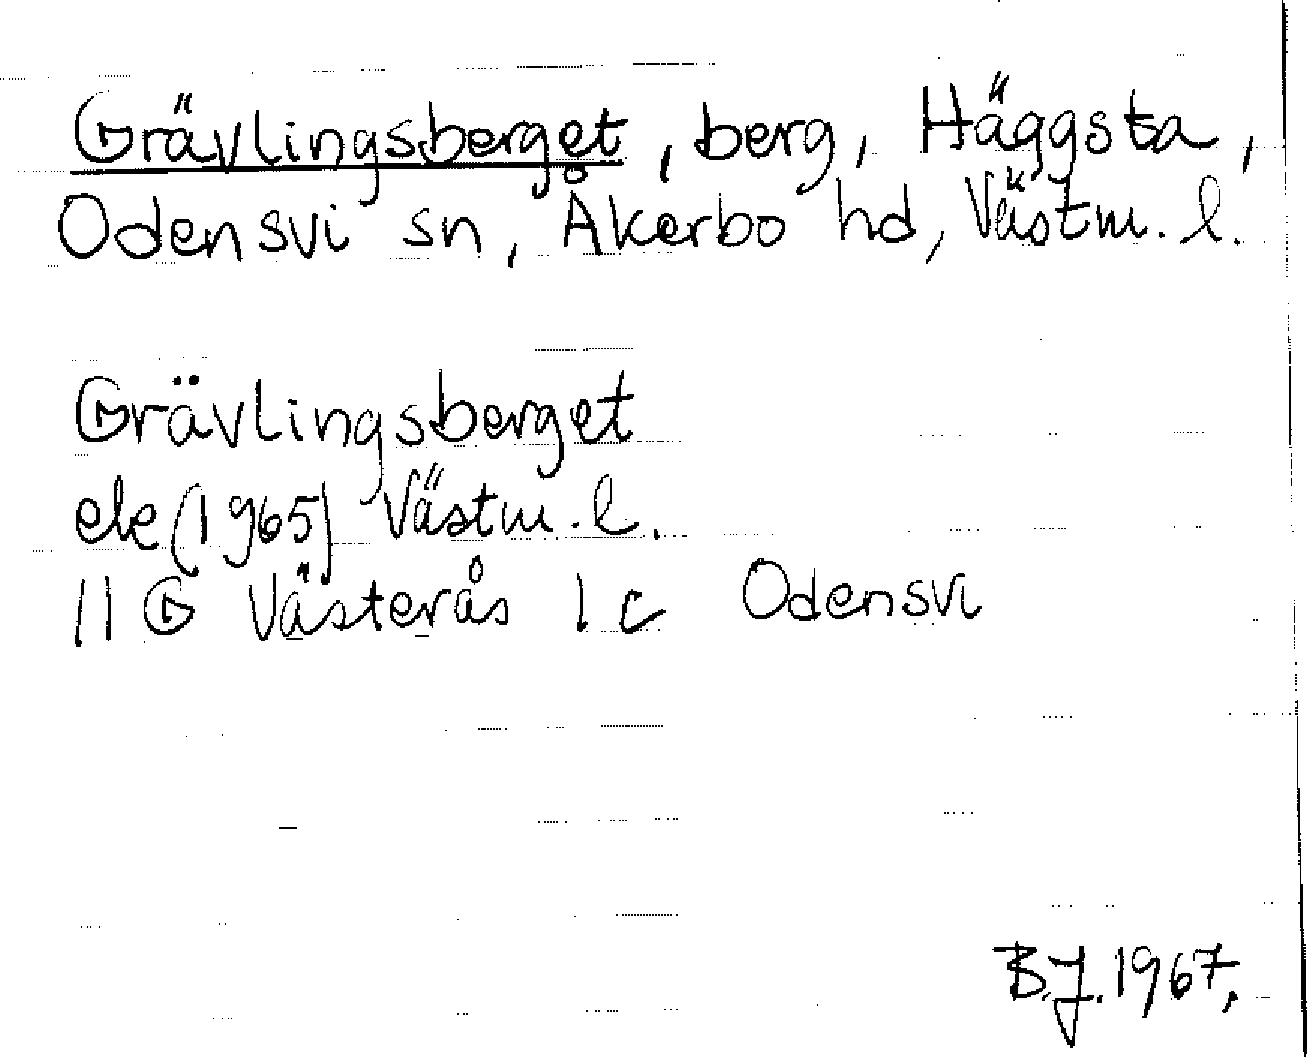 Grävlingsberget, berg, Häggsta,
Odensvi sn, Åkerbo hd, Västm. l.
Grävlingsberget
ek (1965) Västm. l.
11 G Västerås 1 c Odensvi
B.J. 1967.